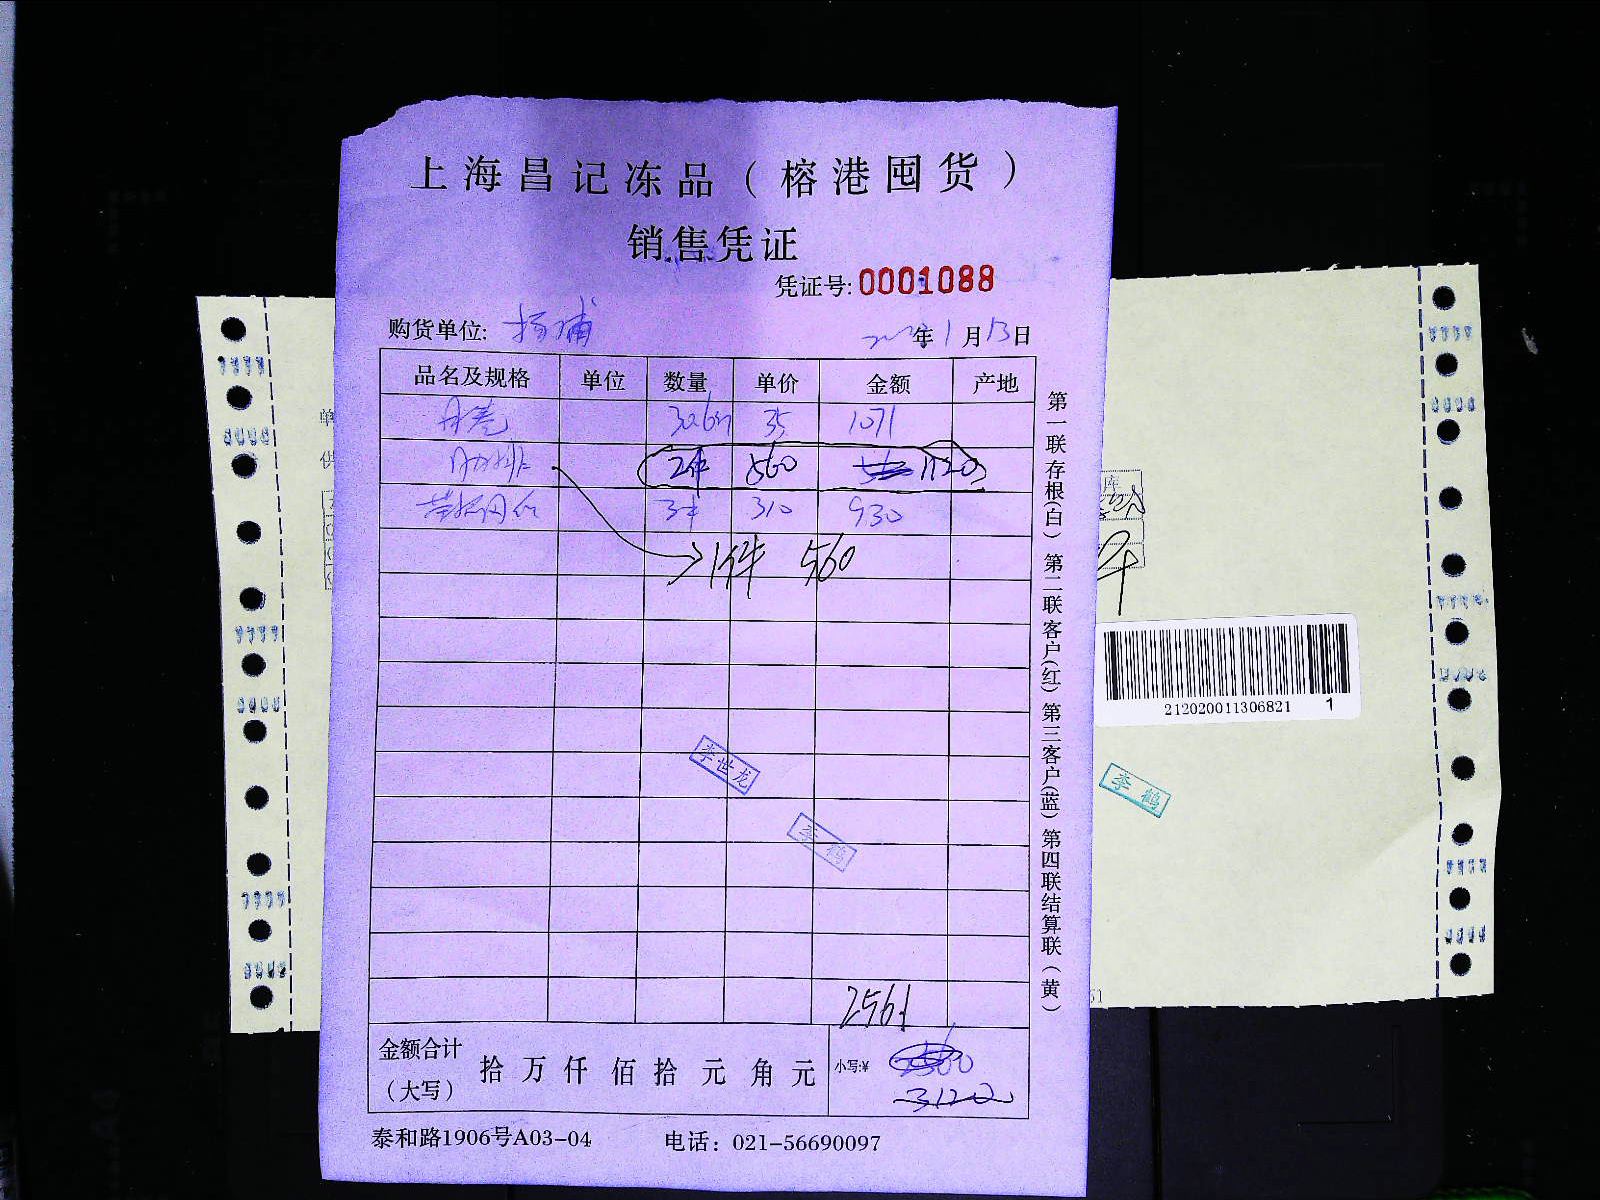 上海昌记冻品（榕港囤货）
销售凭证
凭证号:0001088
购货单位: 杨浦 年1月13日
品名及规格 单位 数量 单价 金额 产地
35 1071
肋排 2件 560 1120
3件 310 930
1件 560
李世龙
李鹤
2561
金额合计（大写） 拾万仟佰拾元角元 小写:¥
3120
泰和路1906号A03-04 电话：021-56690097
第一联存根(白) 第二联客户(红) 第三客户(蓝) 第四联结算联(黄)
单
供
库
212020011306821 1
李鹤
51